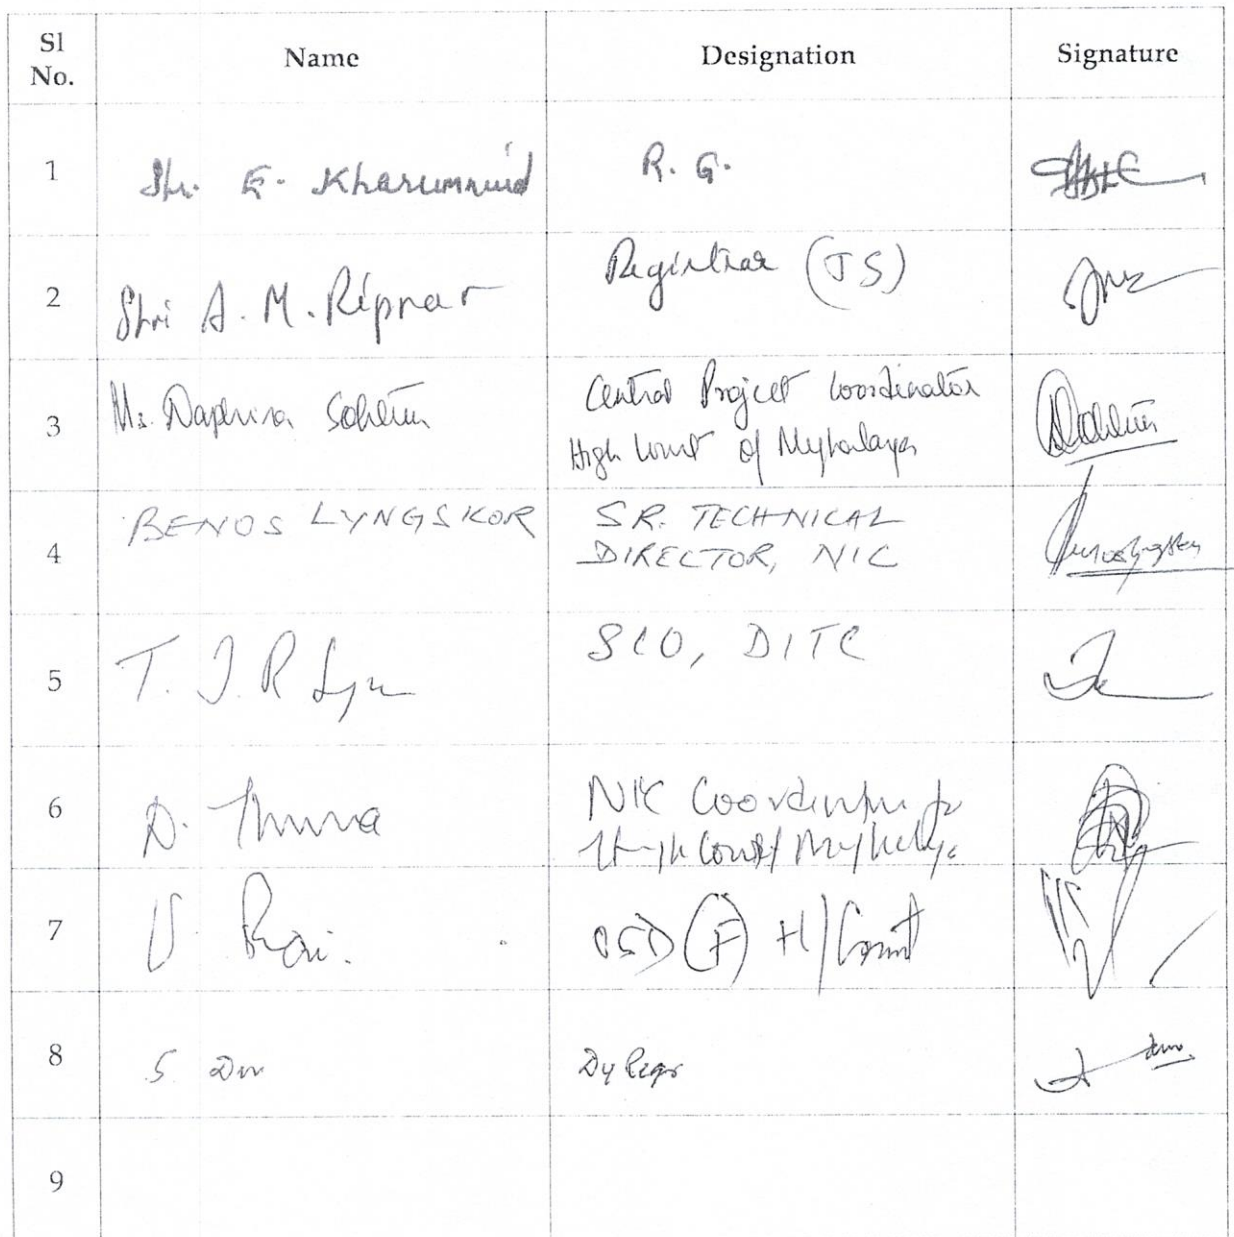 Sl No. Name Designation Signature
1 Shri. E. Kharumnuid R. G.
2 Shri A. M. Ripnar Registrar (JS)
3 Ms. Daphira Sohtun Central Project Coordinator
High Court of Meghalaya
4 BENOS LYNGSKOR SR. TECHNICAL
DIRECTOR, NIC
5 T. J. R SIO, DITC
6 D. NIC Coordinator
High Court Meghalaya
7 V. Rai. OSD (F) H/Court
8 S. Dy Regr
9